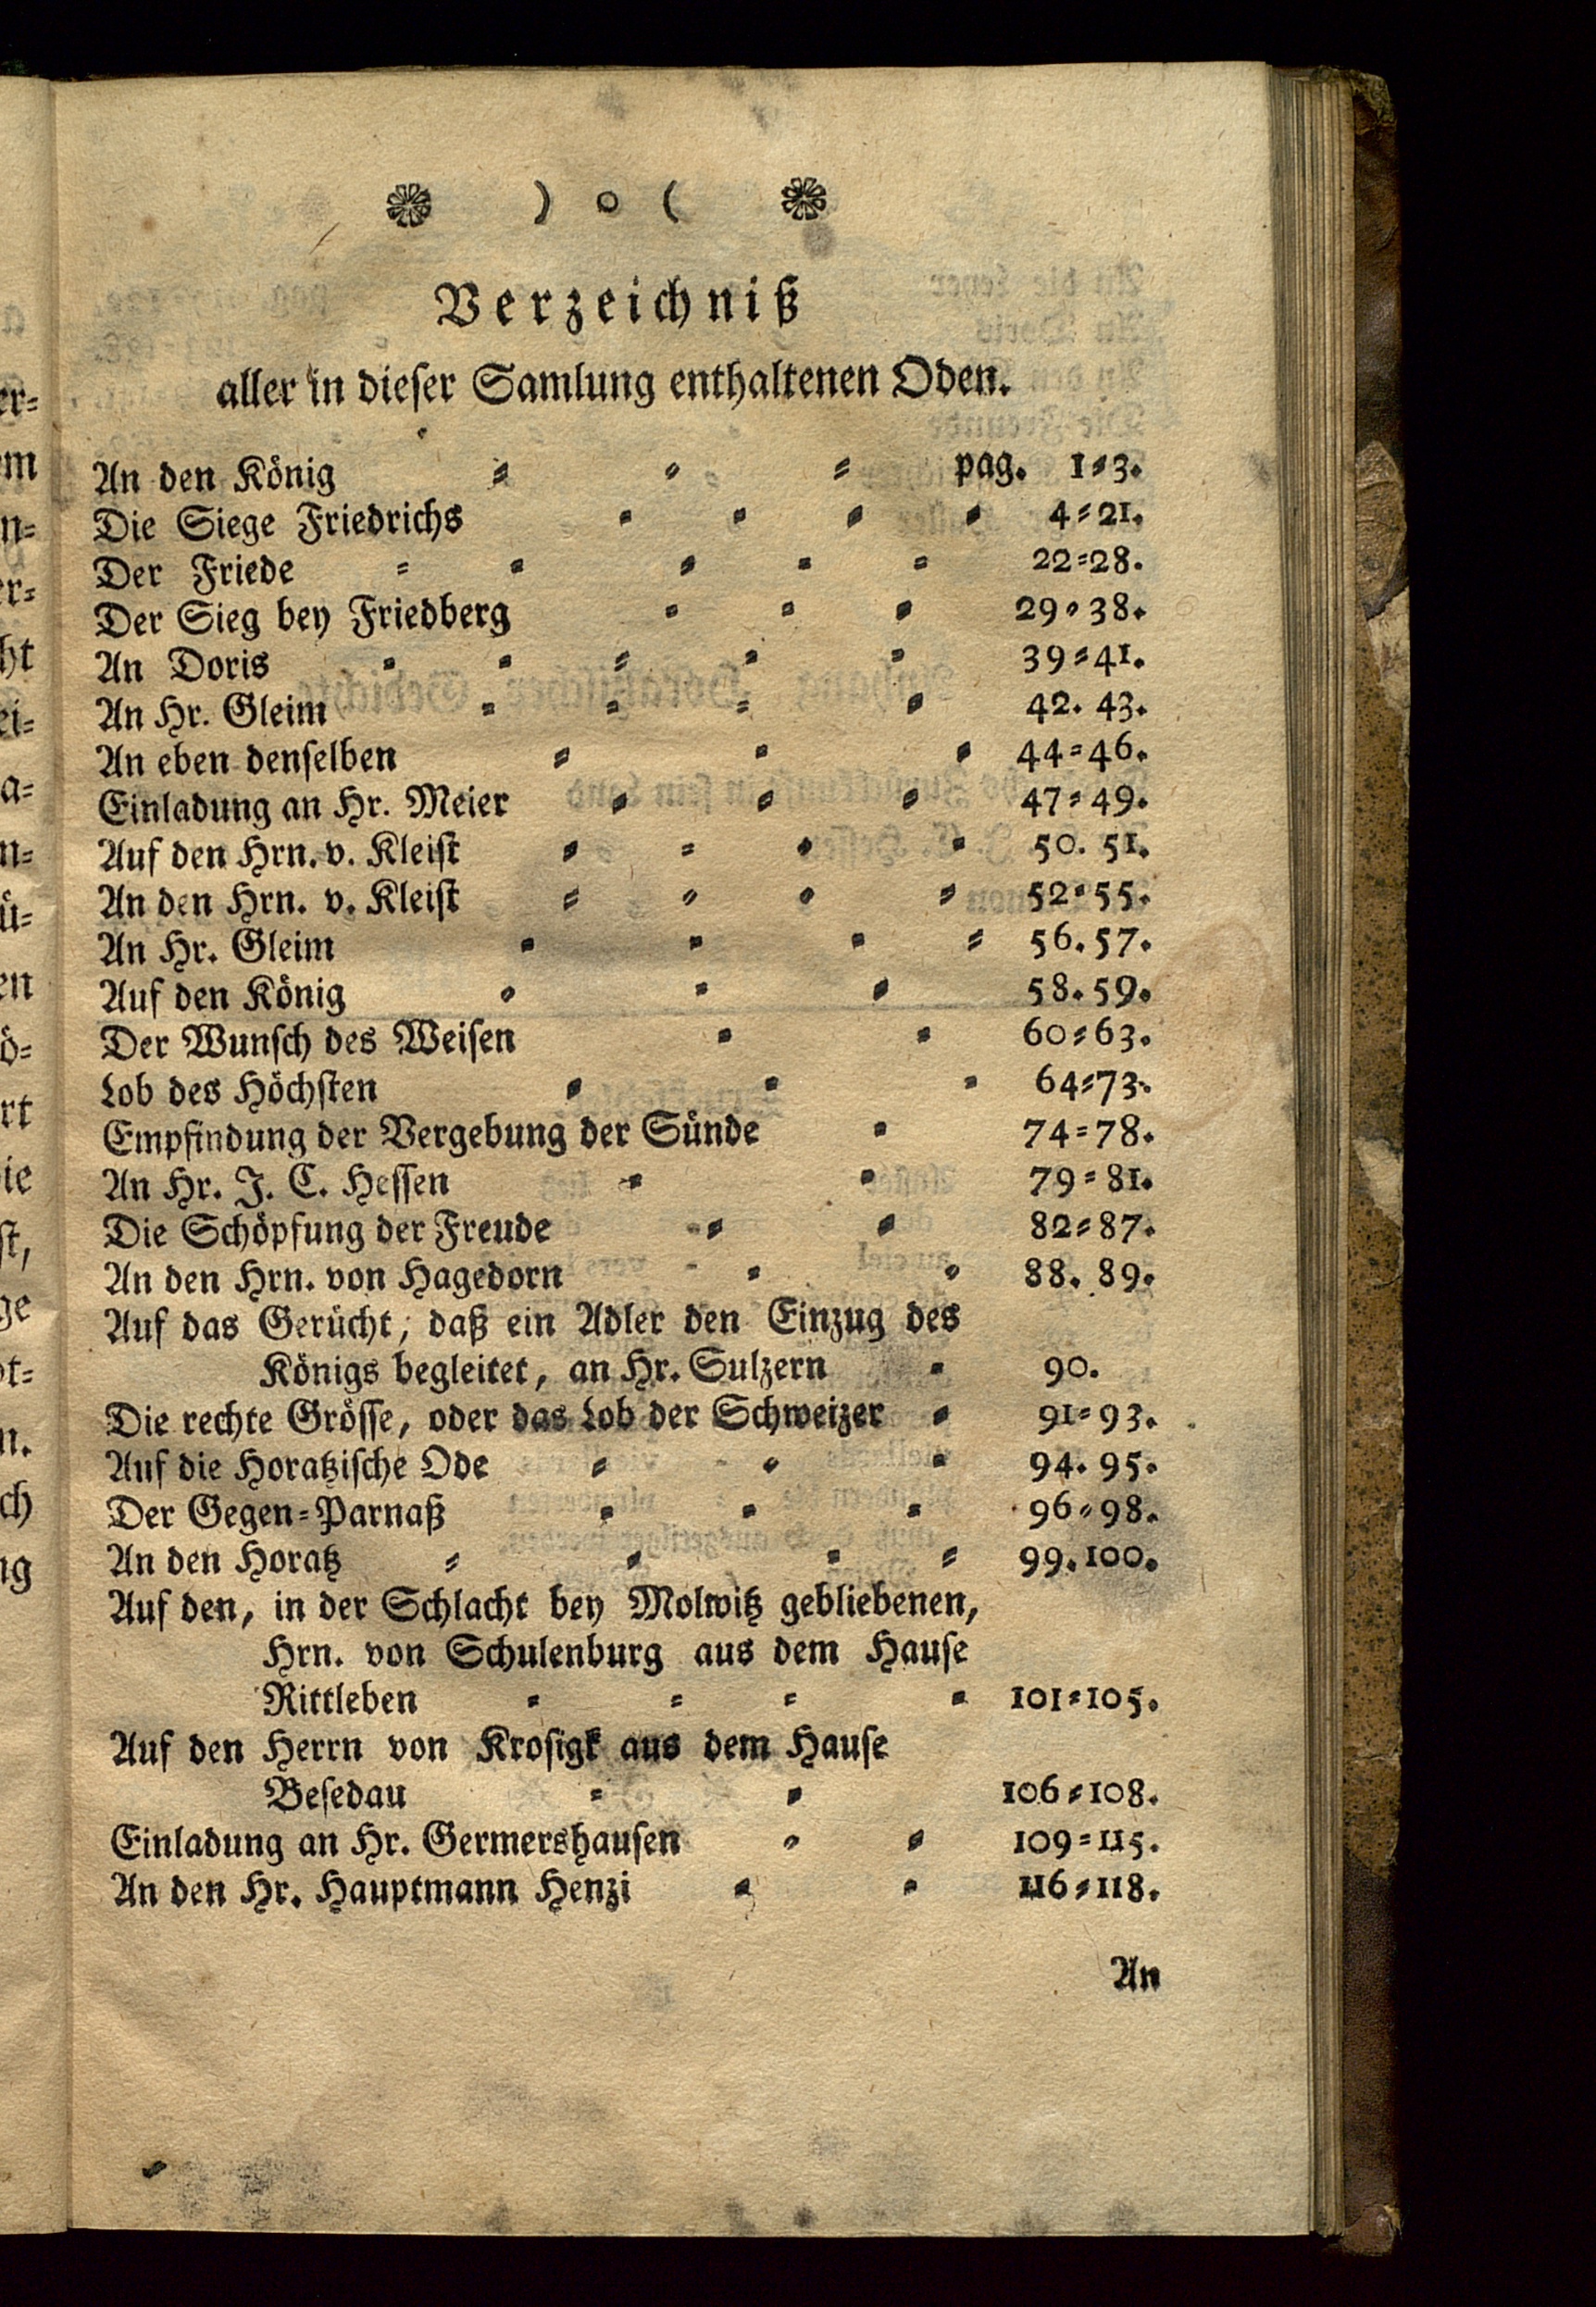 ) o (
Verzeichniß
aller in dieser Samlung enthaltenen Oden.
An den König = = = pag. 1=3.
Die Siege Friedrichs = = = = 4=21.
Der Friede = = = = = 22=28.
Der Sieg bey Friedberg = = = 29=38.
An Doris = = = = = 39=41.
An Hr. Gleim = = = = 42. 43.
An eben denselben = = = 44=46.
Einladung an Hr. Meier = = = 47=49.
Auf den Hrn. v. Kleist = = = = 50. 51.
An den Hrn. v. Kleist = = = = 52=55.
An Hr. Gleim = = = = 56. 57.
Auf den König = = = 58. 59.
Der Wunsch des Weisen = = 60=63.
Lob des Höchsten = = = 64=73.
Empfindung der Vergebung der Sünde = 74=78.
An Hr. J. C. Hessen = = 79=81.
Die Schöpfung der Freude = = 82=87.
An den Hrn. von Hagedorn = = 88. 89.
Auf das Gerücht, daß ein Adler den Einzug des
Königs begleitet, an Hr. Sulzern = 90.
Die rechte Grösse, oder das Lob der Schweizer = 91=93.
Auf die Horatzische Ode = = = 94. 95.
Der Gegen=Parnaß = = = 96=98.
An den Horatz = = = = 99. 100.
Auf den, in der Schlacht bey Molwitz gebliebenen,
Hrn. von Schulenburg aus dem Hause
Rittleben = = = = 101=105.
Auf den Herrn von Krosigk aus dem Hause
Besedau = = 106=108.
Einladung an Hr. Germershausen = = 109=115.
An den Hr. Hauptmann Henzi = = 116=118.
An